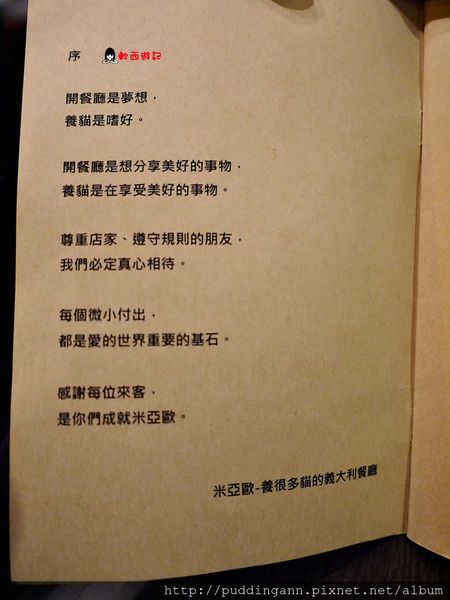 序 軟西遊記
開餐廳是夢想，
養貓是嗜好。
開餐廳是想分享美好的事物，
養貓是在享受美好的事物。
尊重店家、遵守規則的朋友，
我們必定真心相待。
每個微小付出，
都是愛的世界重要的基石。
感謝每位來客，
是你們成就米亞歐。
米亞歐-養很多貓的義大利餐廳
http://puddingann.pixnet.net/album